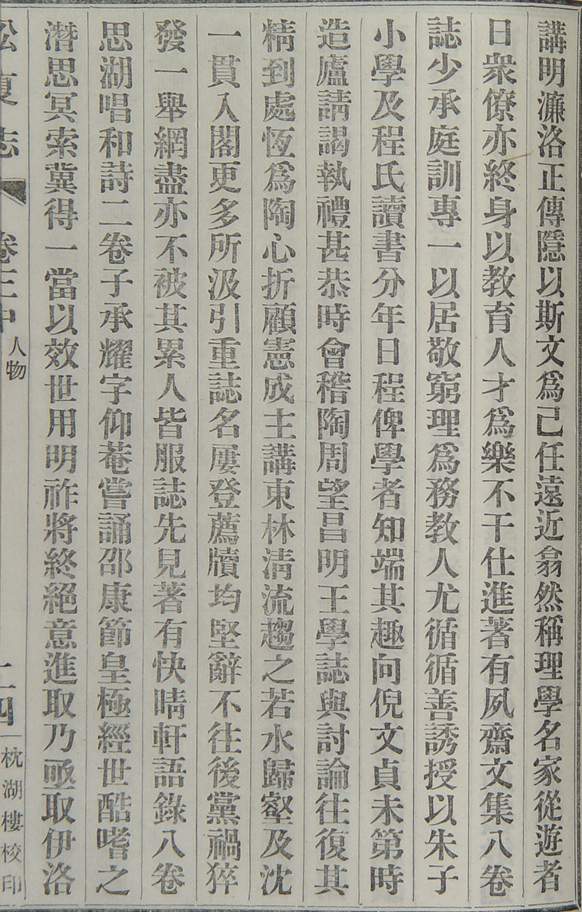 講明濂洛正傳隱以斯文爲己任遠近翕然稱理學名家從遊者
日衆僚亦終身以教育人才爲樂不干仕進著有夙齋文集八卷
誌少承庭訓專一以居敬窮理爲務教人尤循循善誘授以朱子
小學及程氏讀書分年日程俾學者知端其趣向倪文貞未第時
造廬請謁執禮甚恭時會稽陶周望昌明王學誌與討論往復其
精到處恆爲陶心折顧憲成主講東林清流趨之若水歸壑及沈
一貫入閣更多所汲引重誌名屢登薦牘均堅辭不往後黨禍猝
發一舉網盡亦不被其累人皆服誌先見著有快晴軒語錄八卷
思湖唱和詩二卷子承耀字仰菴嘗誦邵康節皇極經世酷嗜之
潛思冥索冀得一當以效世用明祚將終絕意進取乃亟取伊洛
松夏志
卷三中
人物
二四
枕湖樓校印